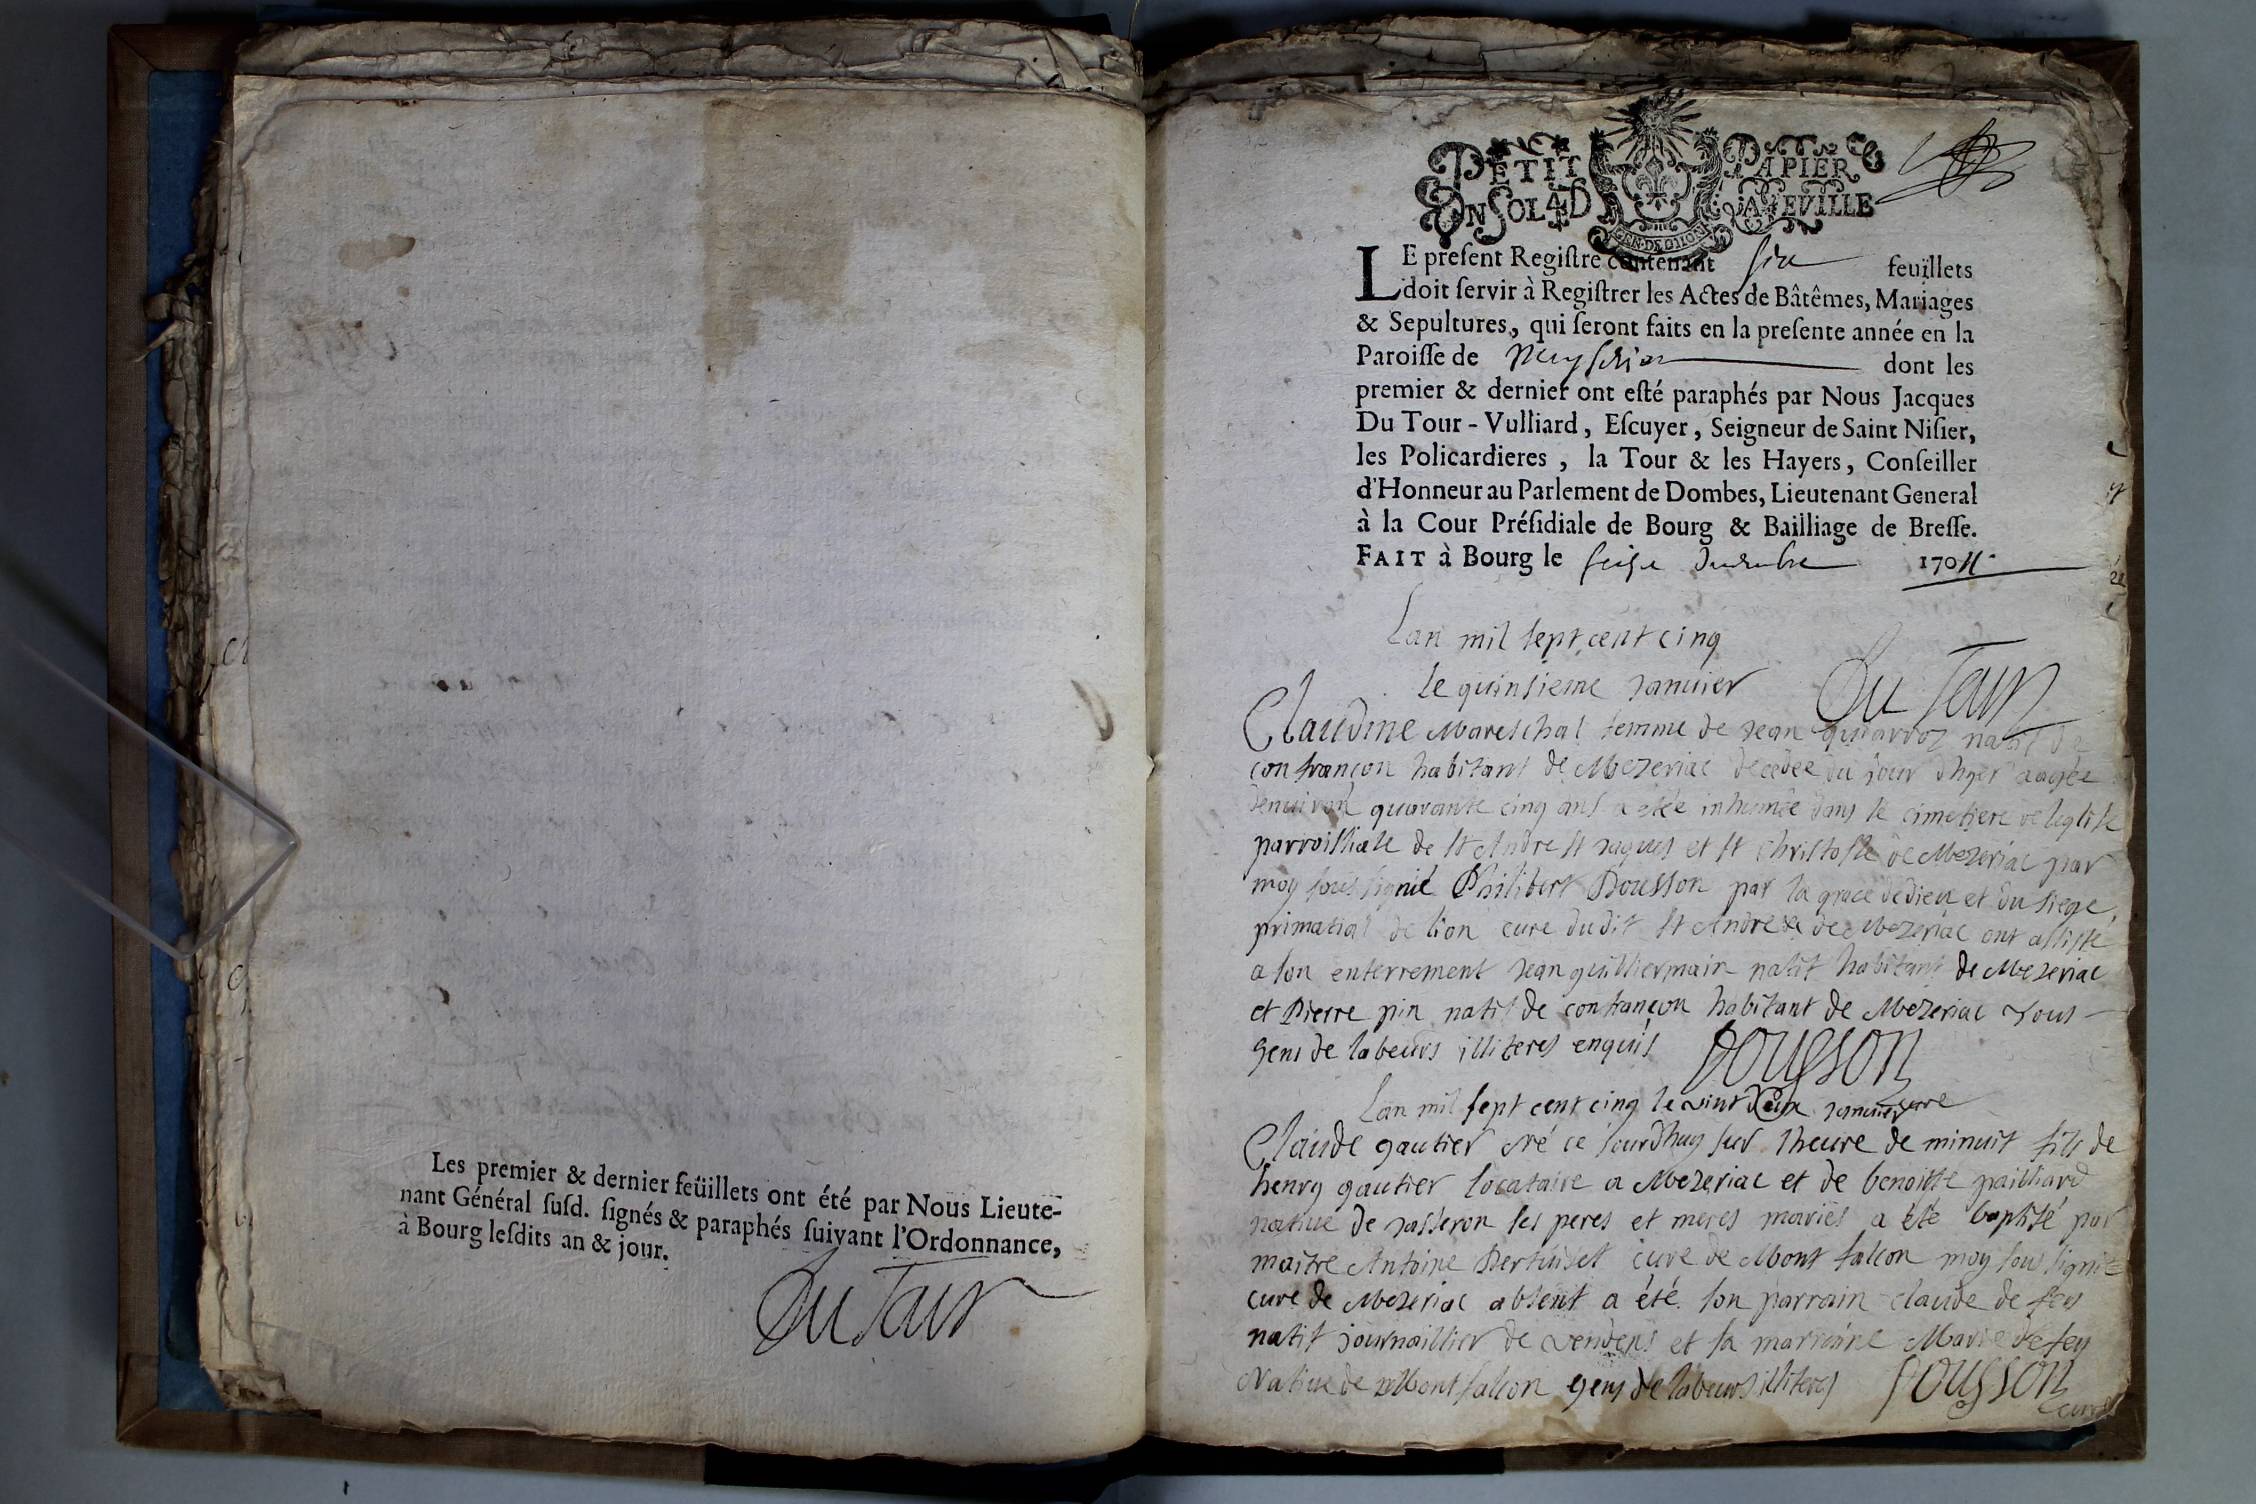 Les premier & dernier feüillets ont été par Nous Lieute-
nant Général ſuſd. ſignés & paraphés ſuivant l'Ordonnance,
à Bourg leſdits an & jour.
Du Tour
PETIT PAPIER
UN SOL 4 D LA FEVILLE
GEN. DE DIION
LE preſent Regiſtre contenant six feuillets
doit ſervir à Regiſtrer les Actes de Bâtêmes, Mariages
& Sepultures, qui ſeront faits en la preſente année en la
Paroiſſe de dont les
premier & dernier ont eſté paraphés par Nous Jacques
Du Tour - Vulliard, Eſcuyer, Seigneur de Saint Niſier,
les Policardieres, la Tour & les Hayers, Conſeiller
d'Honneur au Parlement de Dombes, Lieutenant General
à la Cour Préſidiale de Bourg & Bailliage de Breſſe.
FAIT à Bourg le seise decembre 170
Lan mil sept cent cinq
le quinsieme Janvier Du Tour
Claudine Mareschal femme de Jean natif de
confrançon habitant de Mezeriac decedee du jour dhyer aagée
denuiron quarante cinq ans a étée inhumée dans le cimetiere de leglise
parroissiale de st Andre st Jaques et st christofle de Mezeriac par
moy soussignié Philibert Pousson par la grace de dieu et du siege
primatial de lion cure dudit st Andre de Mezeriac ont assisté
a son enterrement Jean guilliermain natif habitant de Mezeriac
et Pierre pin natif de confrançon habitant de Mezeriac tous
gens de labeurs illiteres enquis Pousson
cure
Lan mil sept cent cinq le vint deux Janvier
Claude gautier né ce jourdhuy sur lheure de minuit fils de
henry gautier locataire a Mezeriac et de benoitte pailliard
natiue de Jasseron ses peres et meres mariés a été baptisé par
maitre Antoine Pertuiset cure de Montfalcon moy soussignié
cure de Mezeriac absent a été son parrain claude de fey
natif journaillier de vendens et sa marraine Marie de fey
Natiue de Montfalcon gens de labeurs illiteres Pousson
cure